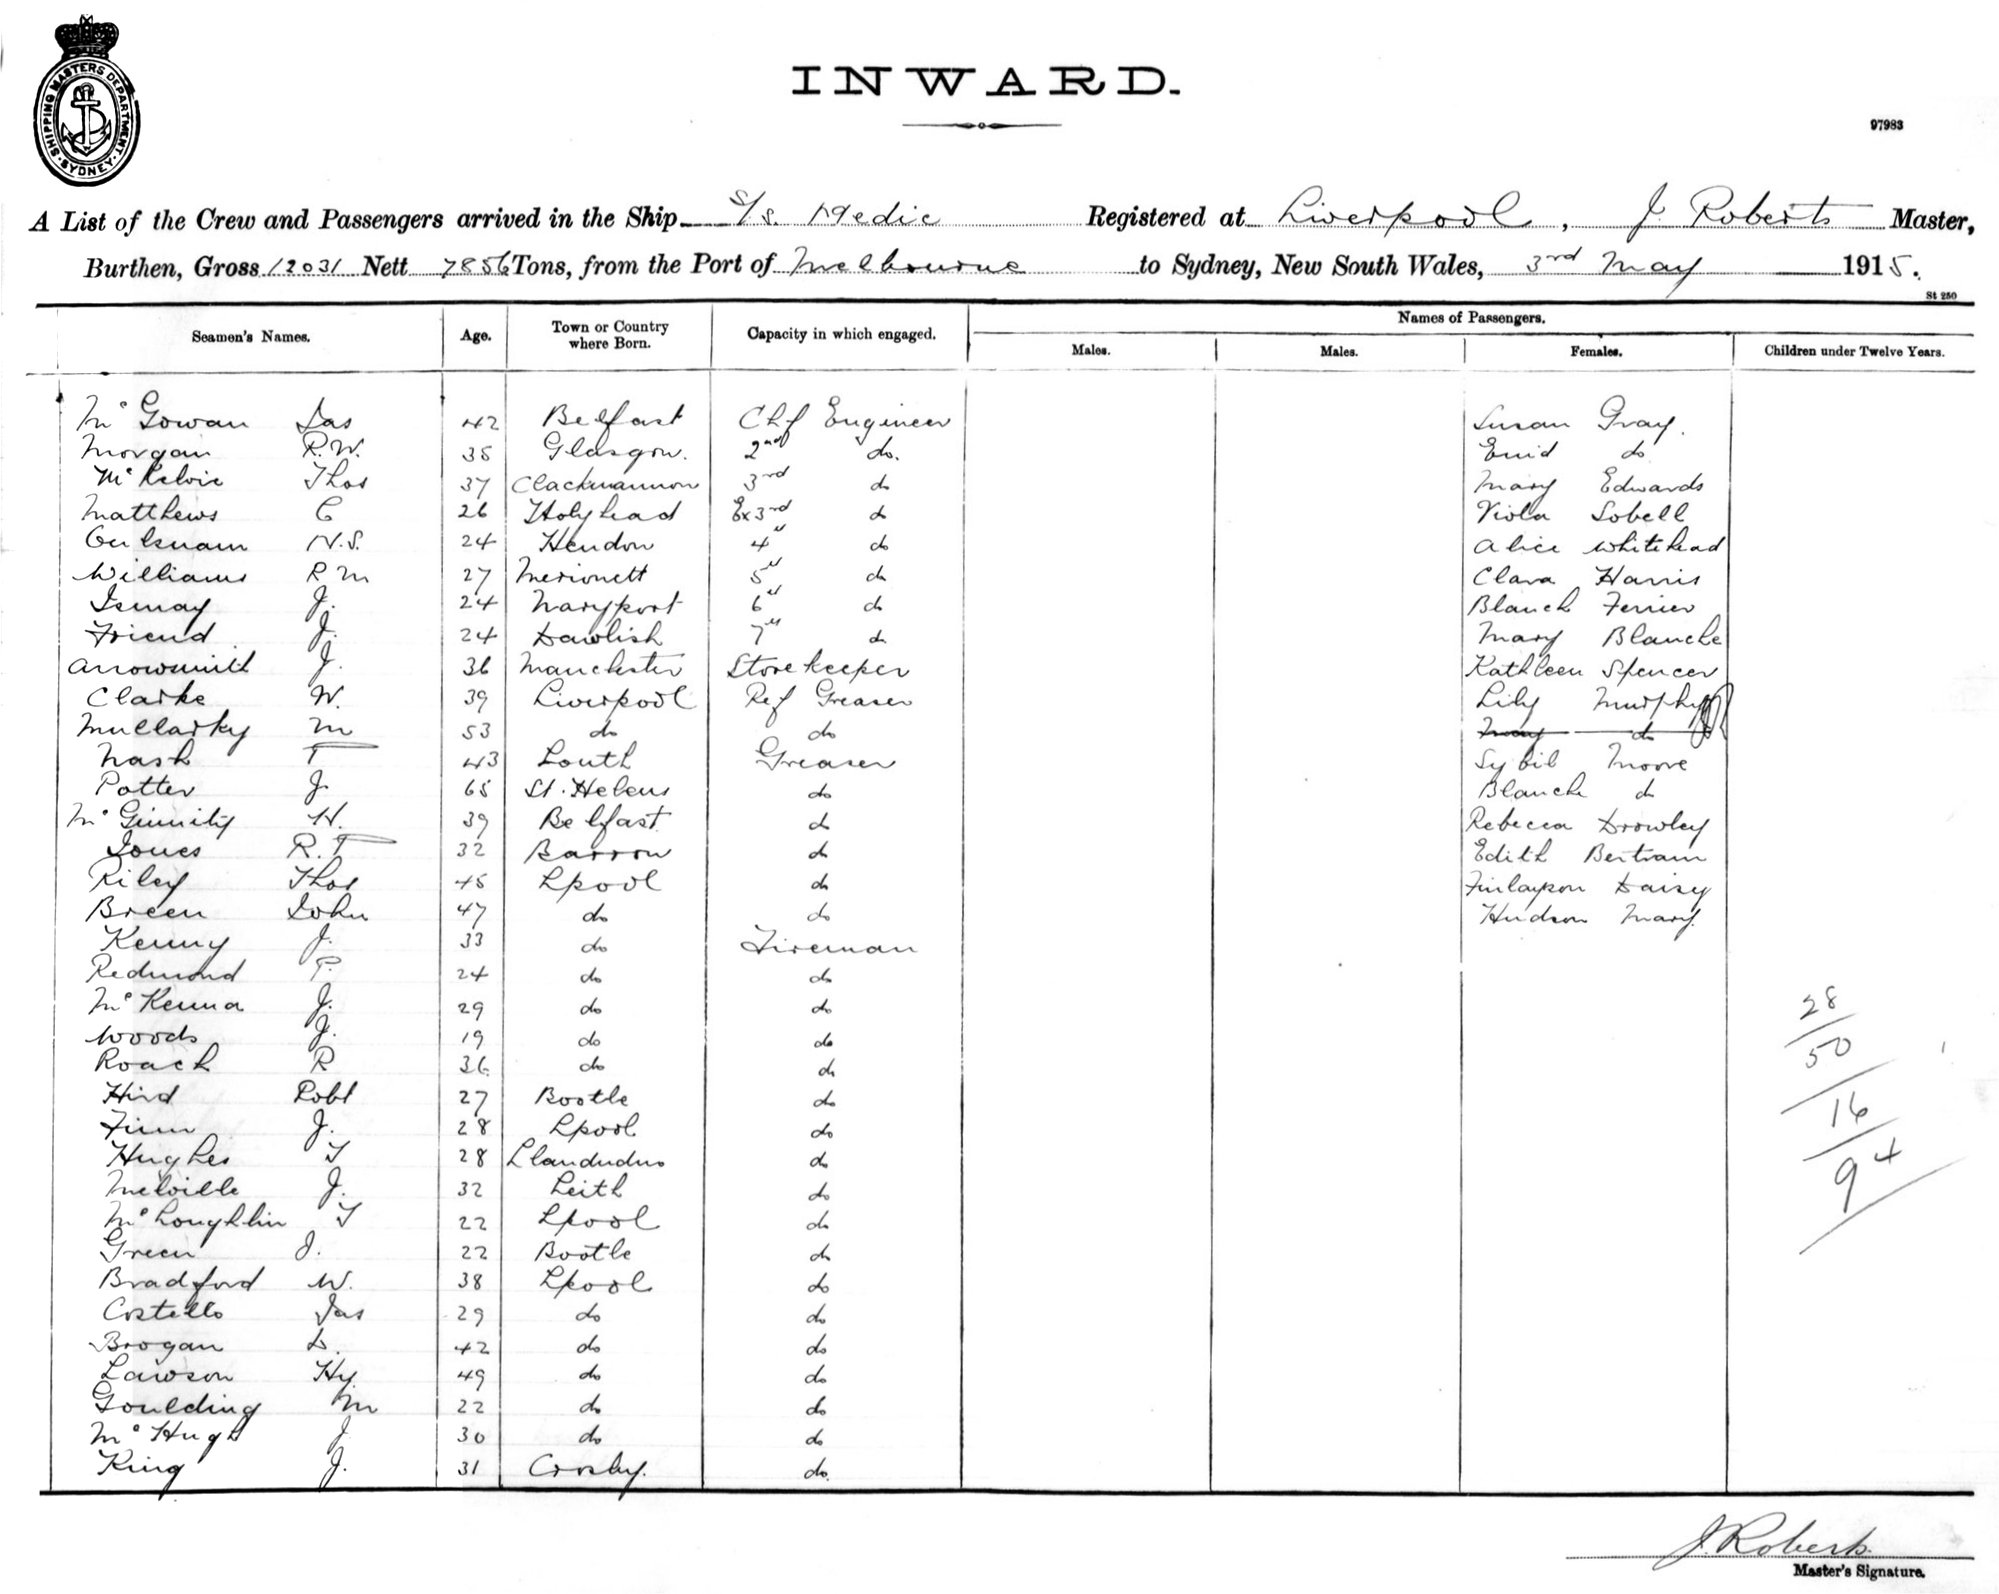 SHIPPING MASTERS DEPARTMENT. SYDNEY.
INWARD.
97983
A List of the Crew and Passengers arrived in the Ship S/s. Medic Registered at Liverpool, J. Roberts Master,
Burthen, Gross 12031 Nett 7856 Tons, from the Port of Melbourne to Sydney, New South Wales, 3rd May 1915.
St 250
Seamen's Names. Age. Town or Country where Born. Capacity in which engaged. Names of Passengers.
Males. Males. Females. Children under Twelve Years.
McGowan Jas 42 Belfast Chf Engineer Susan Gray.
Morgan R.W. 35 Glasgow. 2nd do. Enid do
McKelvie Thos 37 Clackmannon 3rd do Mary Edwards
Matthews C 26 Holyhead Ex 3rd do Viola Sobell
N.S. 24 Hendon 4" do Alice Whitehead
Williams R M 27 Merionett 5" do Clara Harris
Ismay J. 24 Maryport 6" do Blanch Ferrier
Friend J. 24 Dawlish 7" do Mary Blanche
Arrowsmith J. 36 Manchester Storekeeper Kathleen Spencer
Clarke W. 39 Liverpool Ref Greaser Lily Murphy
Mullarky M 53 do do May do
Nash T 43 Louth Greaser Sybil Moore
Potter J. 65 St. Helens do Blanche do
McGinnity H. 39 Belfast. do Rebecca Drowley
Jones R.T 32 Barrow do Edith Bertram
Riley Thos 45 Lpool do Finlayson Daisy
Breen John 47 do do Hudson Mary.
Kenny J. 33 do Fireman
Redmond P. 24 do do
McKenna J. 29 do do
Woods J. 19 do do
Roach R 36 do do
Hird Robt 27 Bootle do
Finn J. 28 Lpool do
Hughes T 28 Llandudno do
Melville J. 32 Leith do
McLoughlin T 22 Lpool do
Green J. 22 Bootle do
Bradford W. 38 Lpool do
Costello Jas 29 do do
Brogan D. 42 do do
Lawson Hy 49 do do
Goulding M 22 do do
McHugh J 30 do do
King J. 31 Crosby. do.
28
50
16
94
J. Roberts.
Master's Signature.